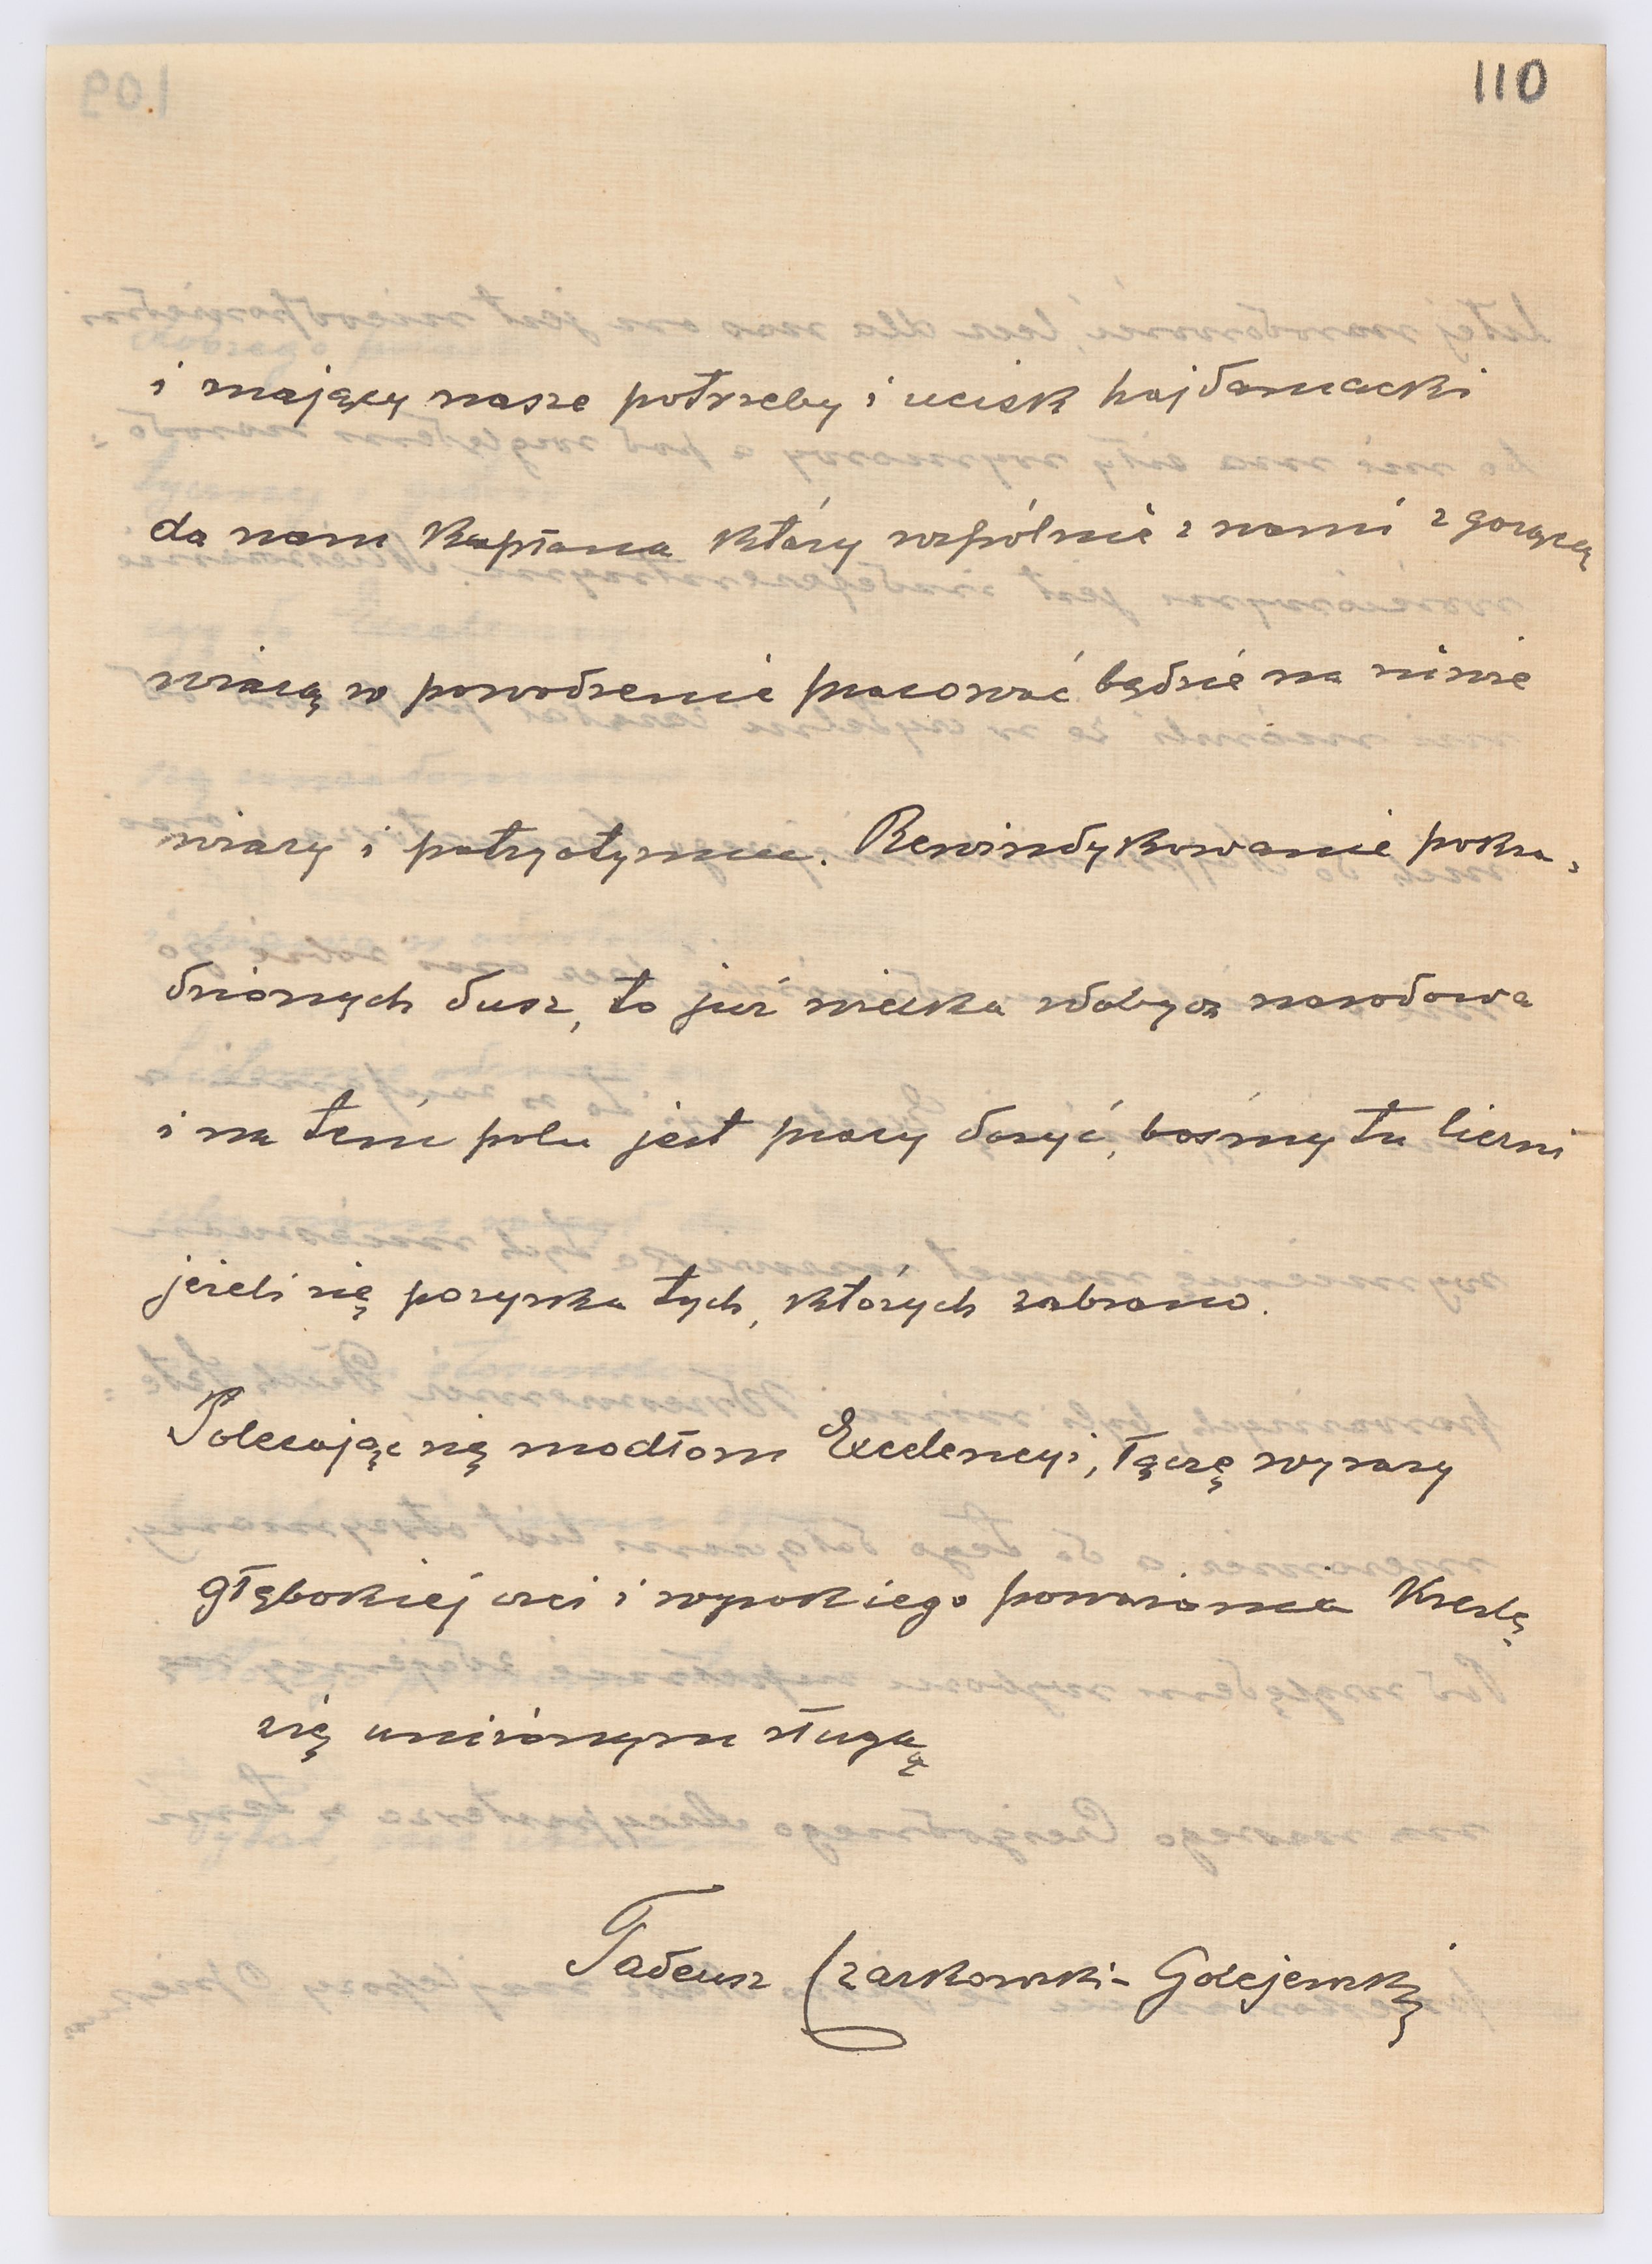 110
i znający nasze potrzeby i ucisk hajdamacki
da nam kapłana który wspólnie z nami z gorącą
wiarą w powodzenie pracować będzie na niwie
wiary i patryotyzmu. Rewindykowanie pokra-
dzionych dusz, to już wielka zdobycz narodowa
i na tem polu jest pracy dosyć, bośmy tu liczni
jeżeli się pozyska tych, których zabrano.
Polecając się modłom Excelencyi, łączę wyrazy
głębokiej czci i wysokiego poważania Kreślę
się uniżonym sługą
Tadeusz Czarkowski-Golejewski